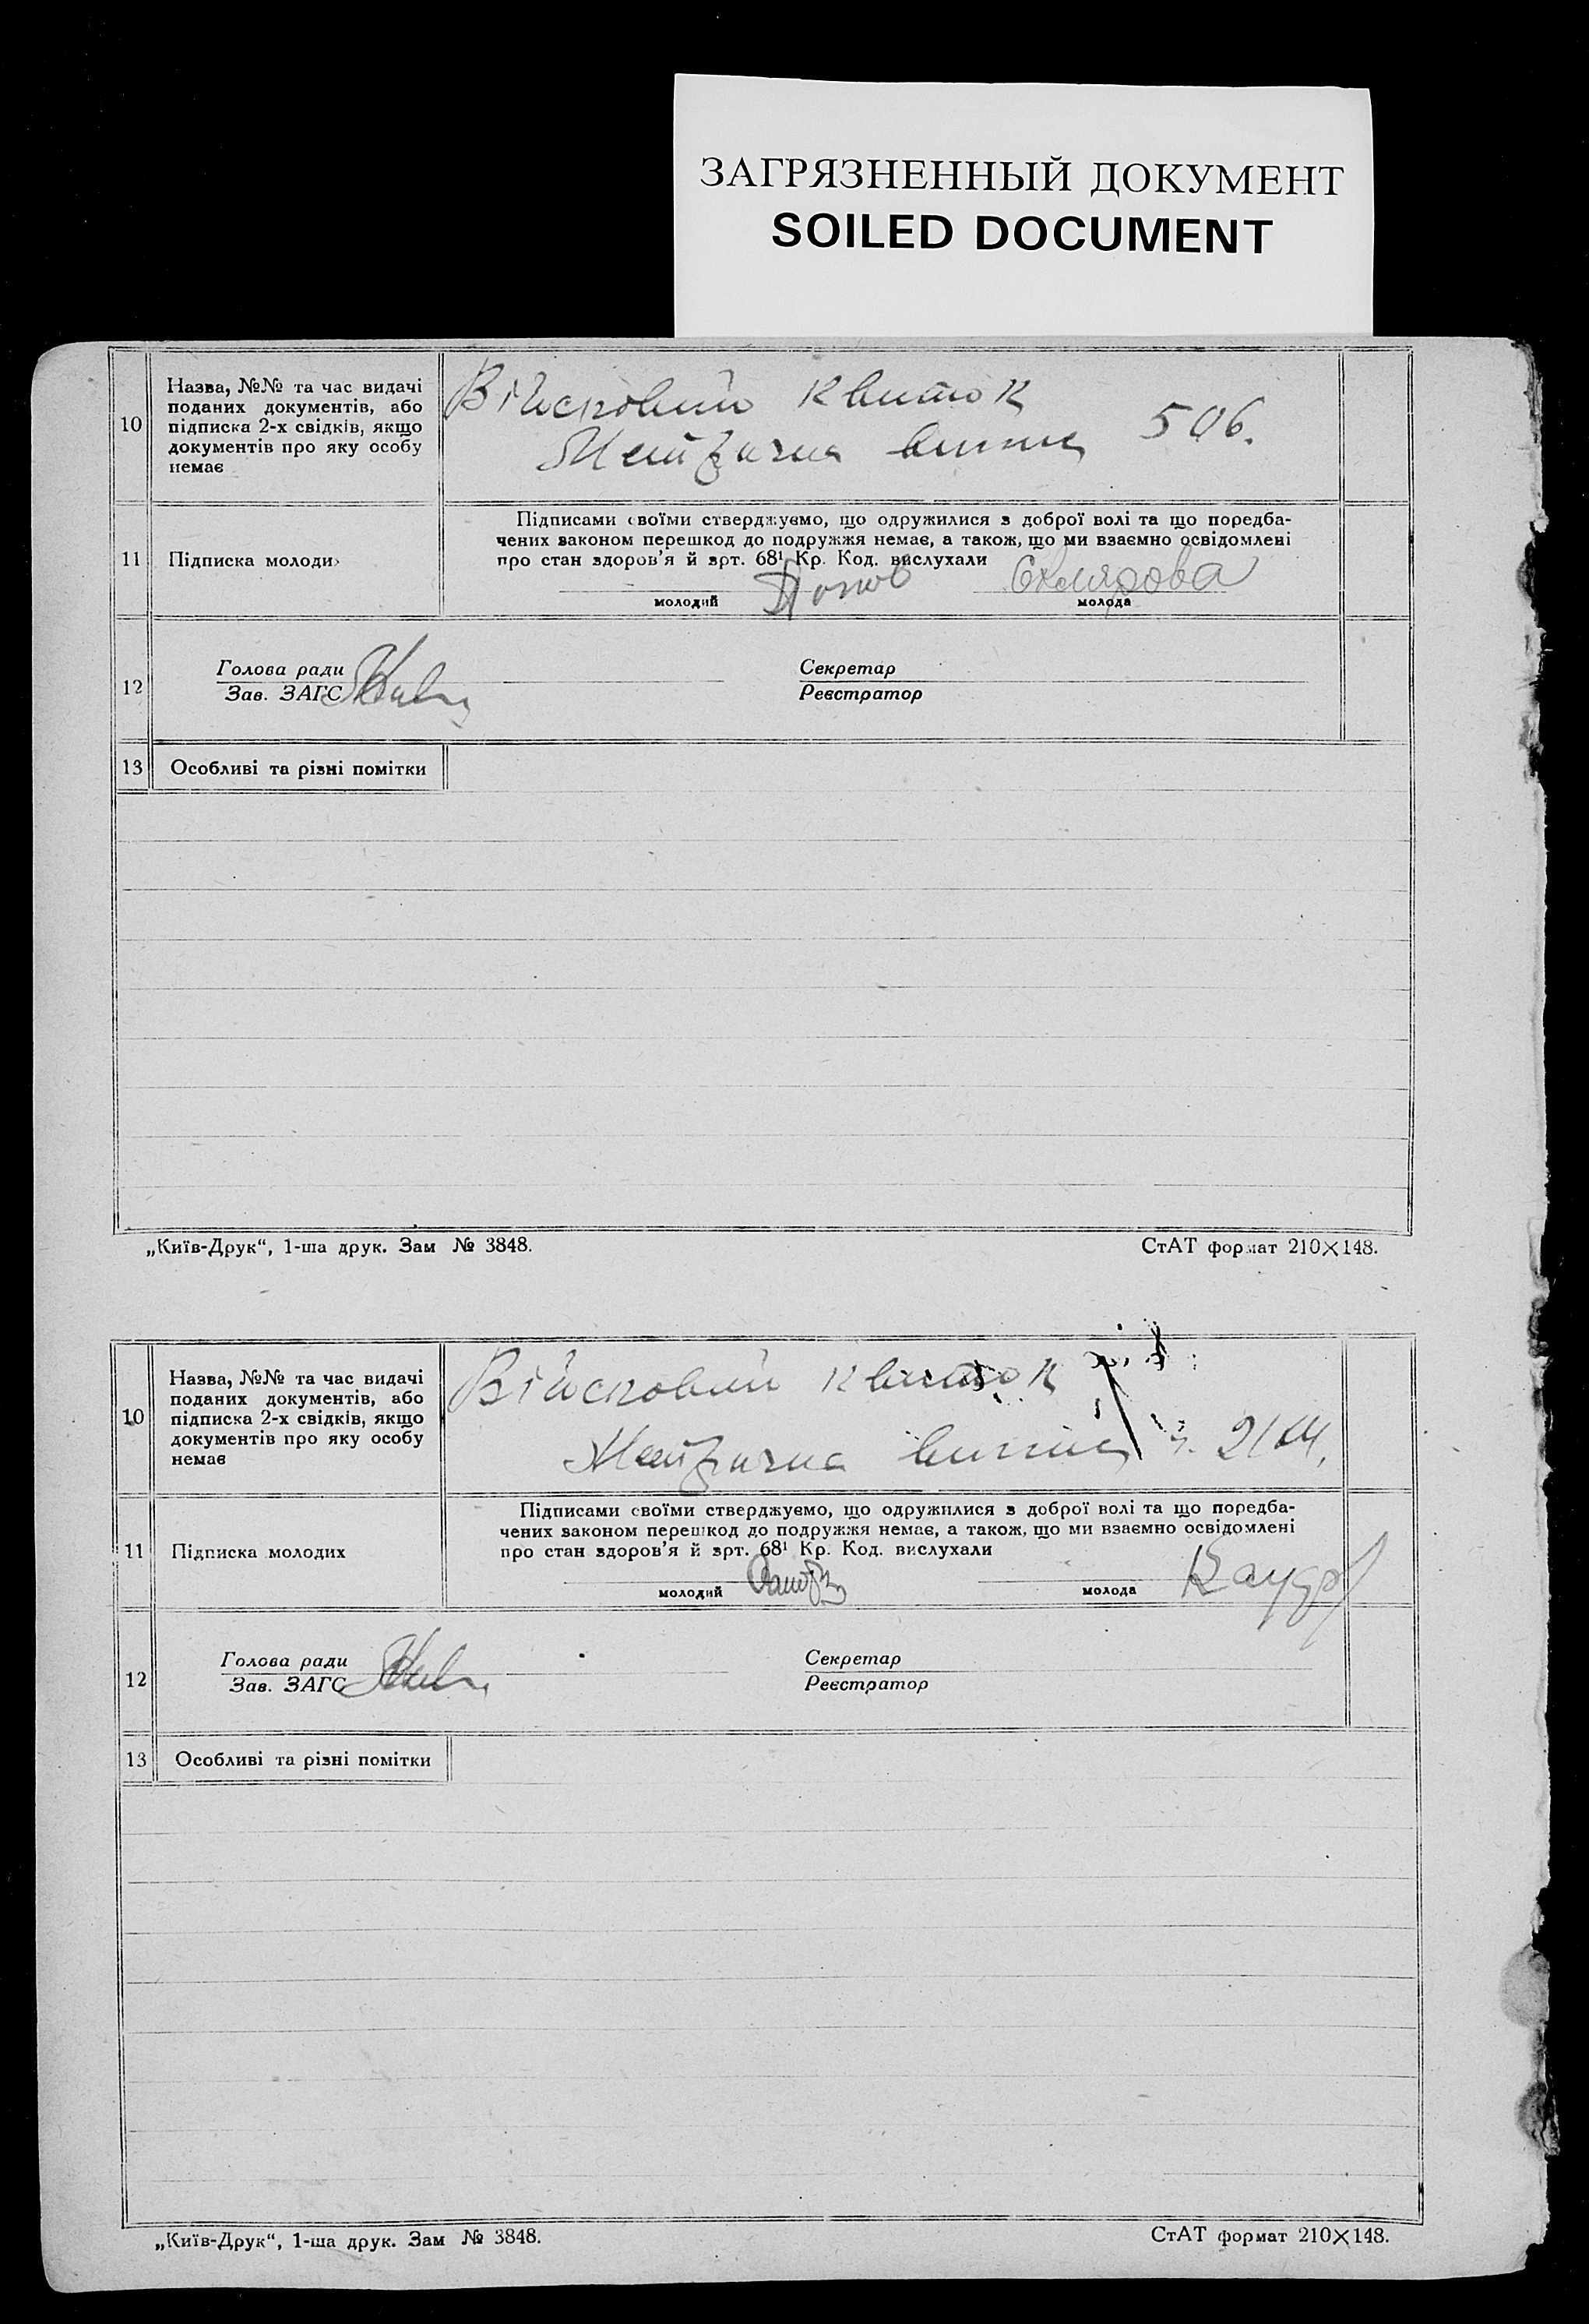 ЗАГРЯЗНЕННЫЙ ДОКУМЕНТ
SOILED DOCUMENT
10
Назва, №№ та час видачі
поданих документів, або
підписка 2-х свідків, якщо
документів про яку особу
немає
Військовий квиток
Метрична 506.
11
Підписка молоди
Підписами своїми стверджуємо, що одружилися з доброї волі та що поредба-
чених законом перешкод до подружжя немає, а також, що ми взаємно освідомлені
про стан здоров'я й арт. 68¹ Кр. Код. вислухали
молодий Попов молода Склярова
12
Голова ради
Зав. ЗАГС
Секретар
Реєстратор
13 Особливі та різні помітки
„Київ-Друк“, 1-ша друк. Зам № 3848.
СтАТ формат 210×148.
10
Назва, №№ та час видачі
поданих документів, або
підписка 2-х свідків, якщо
документів про яку особу
немає
Військовий квиток
Метрична
11
Підписка молодих
Підписами своїми стверджуємо, що одружилися з доброї волі та що поредба-
чених законом перешкод до подружжя немає, а також, що ми взаємно освідомлені
про стан здоров'я й арт. 68¹ Кр. Код. вислухали
молодий молода
12
Голова ради
Зав. ЗАГС
Секретар
Реєстратор
13 Особливі та різні помітки
„Київ-Друк“, 1-ша друк. Зам № 3848.
СтАТ формат 210×148.